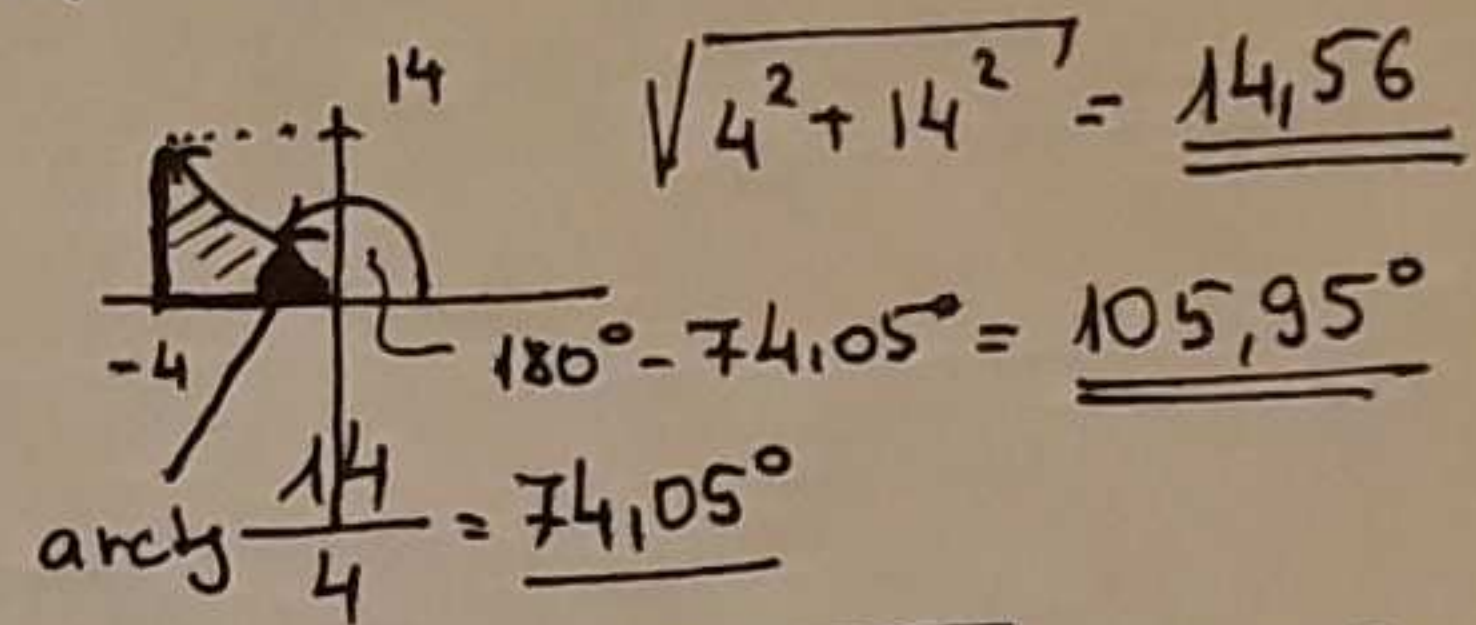 14
√4² + 14² = 14,56
-4
180° - 74,05° = 105,95°
arctg 14/4 = 74,05°